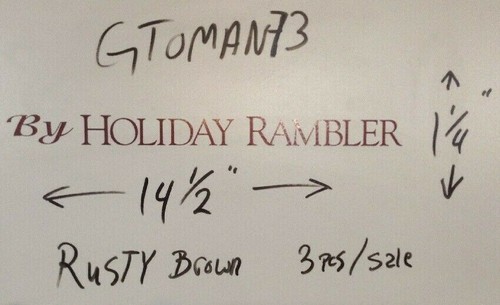 GTOMAN73
By HOLIDAY RAMBLER
1 1/4"
14 1/2"
RUSTY BROWN 3 pcs/sale